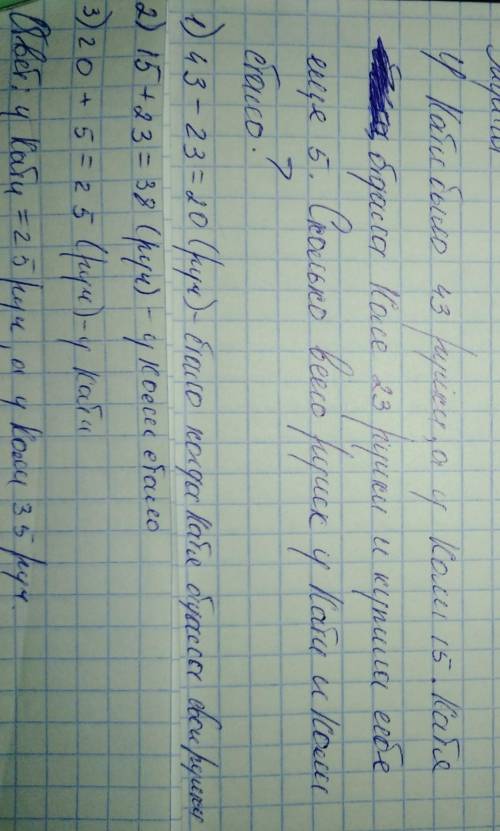 У Кати было 43 ручки, а у Коли 15. Катя
отдала Коле 23 ручки и купила себе
еще 5. Сколько всего ручек у Кати и Коли
стало?
1) 43 - 23 = 20 (руч) - было когда Катя свои ручки
2) 15 + 23 = 38 (руч) - у Коли стало
3) 20 + 5 = 25 (руч) - у Кати
Ответ: у Кати = 25 руч, а у Коли 35 руч.